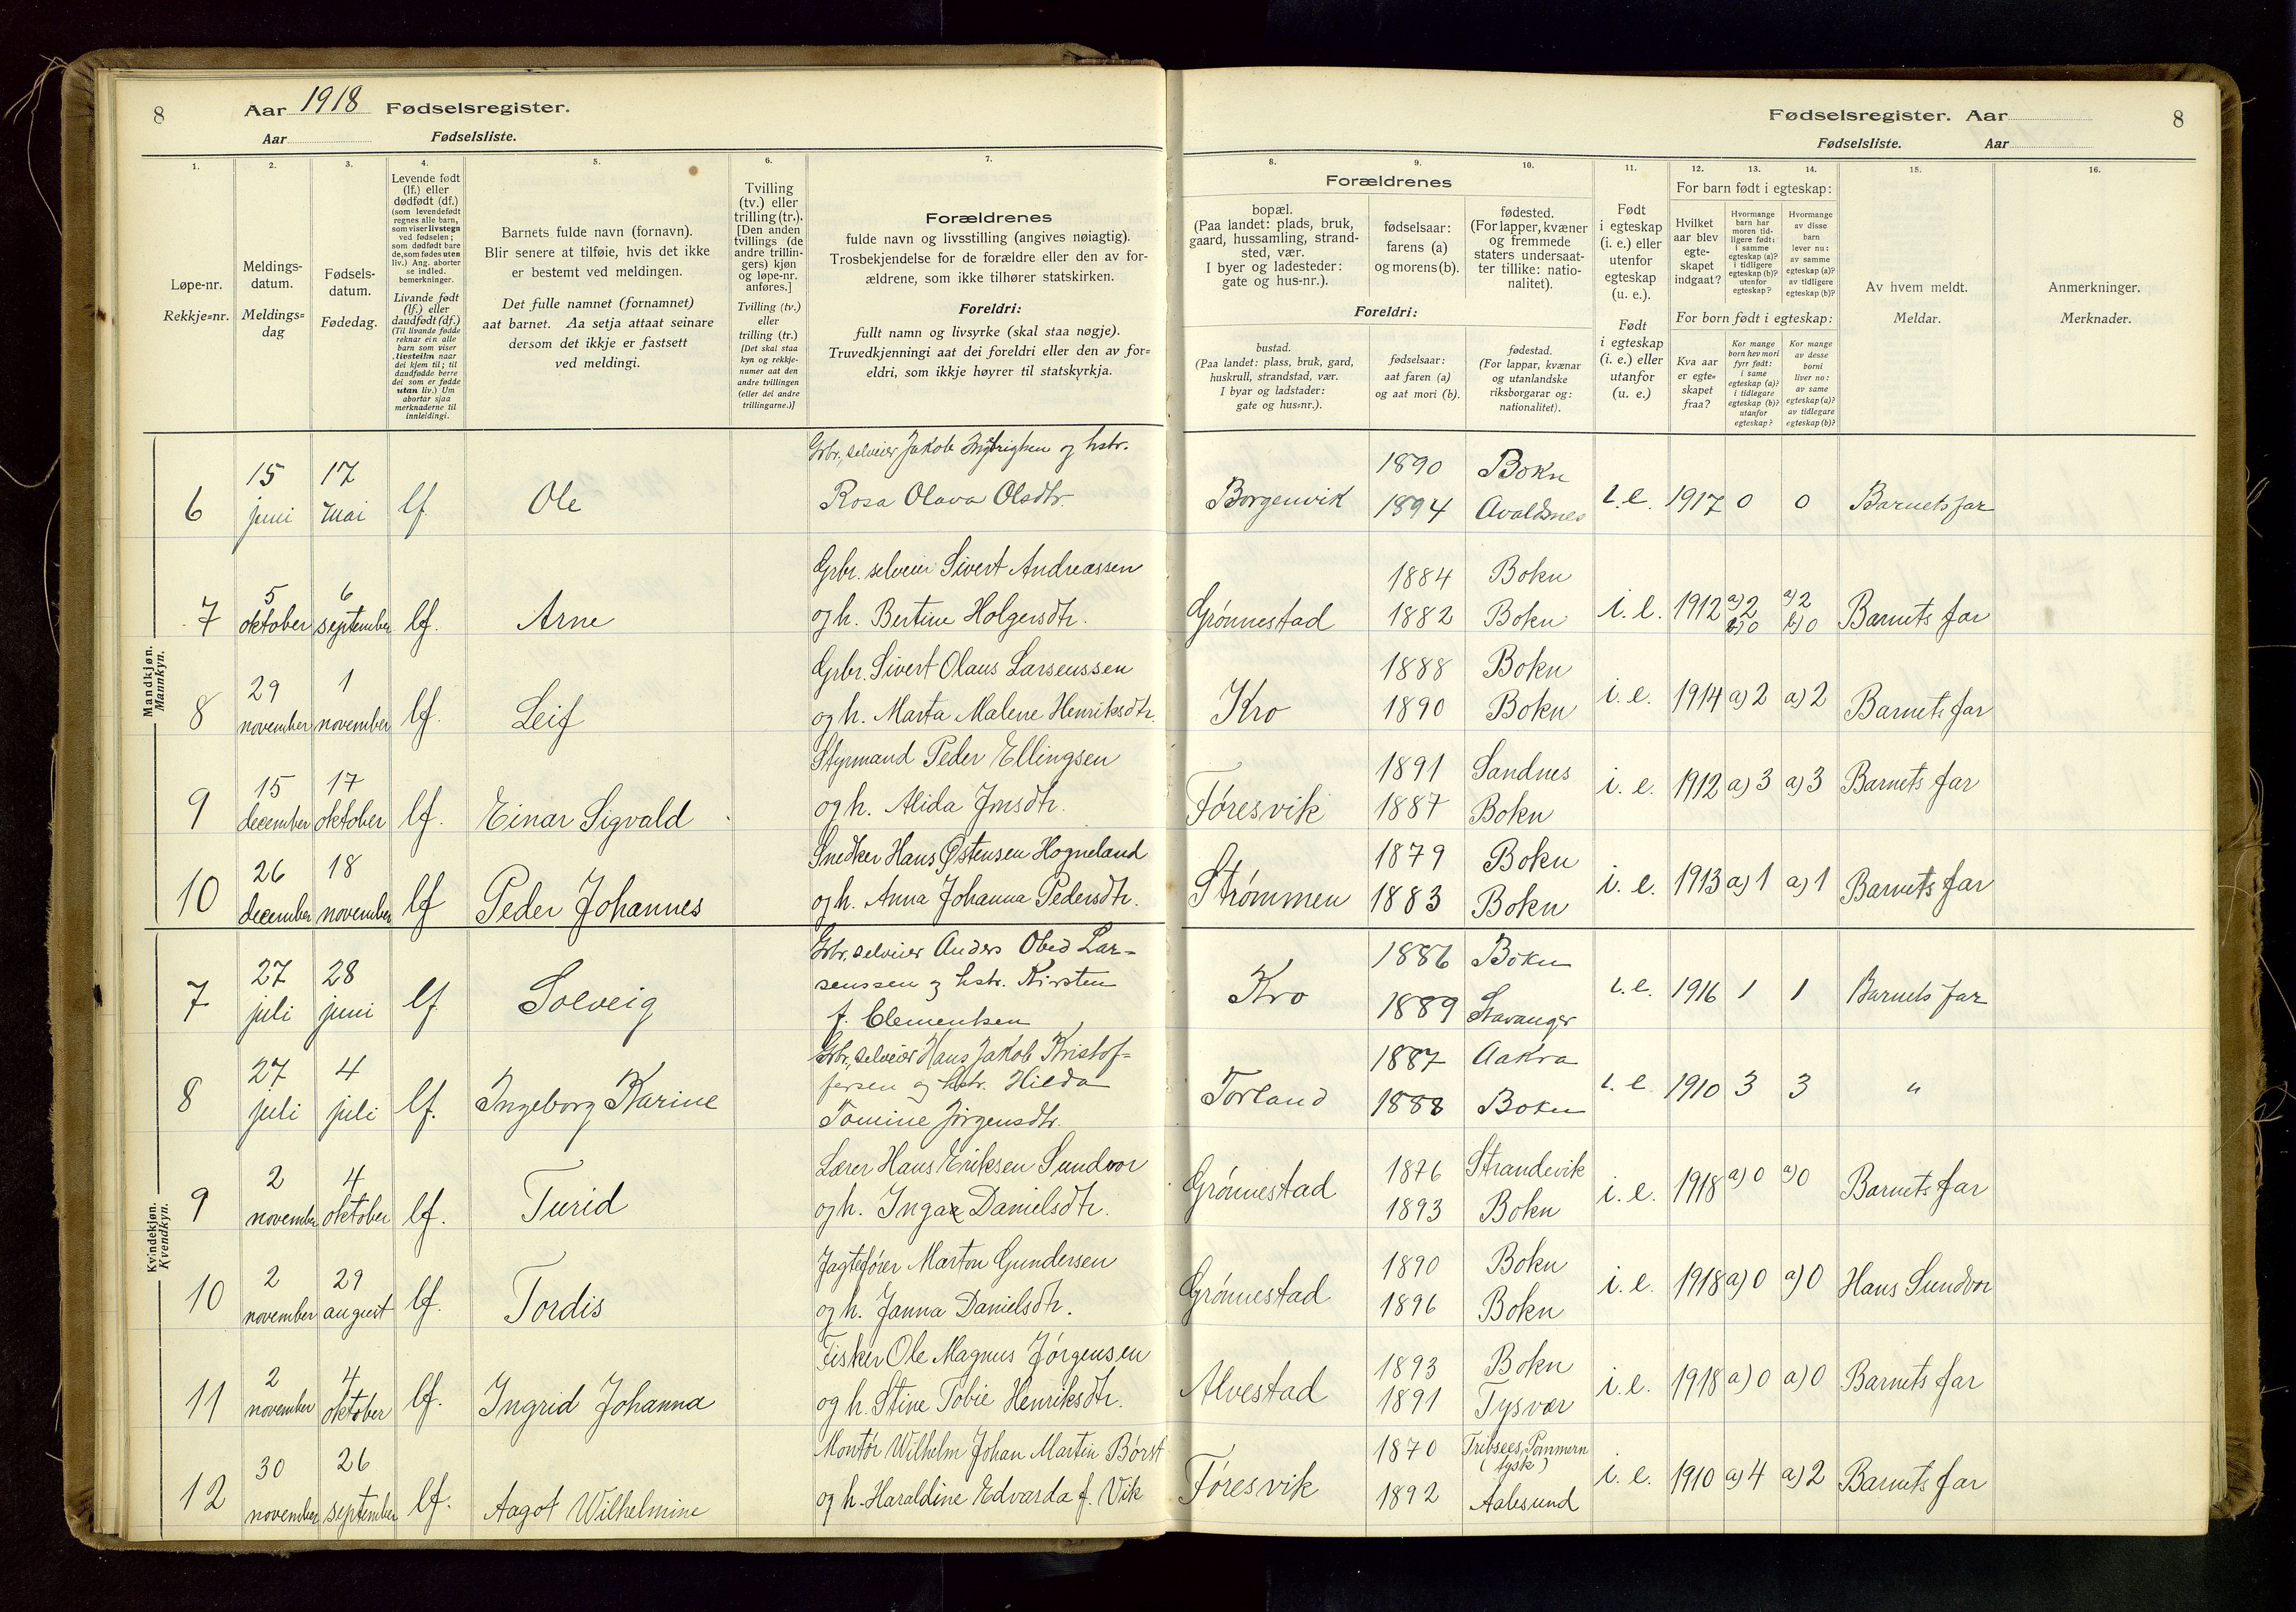 8 Aar 1918 Fødselsregister.
Aar Fødselsliste.
Fødselsregister. Aar 8
Fødselsliste. Aar
1. 2. 3. 4. 5. 6. 7. 8. 9. 10. 11. 12. 13. 14. 15. 16.
Løpe-nr.
Rekkje=nr.
Meldings-
datum.
Meldings=
dag
Fødsels-
datum.
Fødedag.
Levende født
(lf.) eller
dødfødt (df.)
(som levendefødt
regnes alle barn,
som viser livstegn
ved fødselen;
som dødfødt bare
de, som fødes uten
liv.) Ang. aborter
se indled.
bemerkninger.
Livande født
(lf.) eller
daudfødt (df.)
(Til livande fødde
reknar ein alle
barn som viser
livsteikn naar
dei kjem til; til
daudfødde berre
dei som er fødde
utan liv.) Um
abortar sjaa
merknaderne til
innleidingi.
Barnets fulde navn (fornavn).
Blir senere at tilføie, hvis det ikke
er bestemt ved meldingen.
Det fulle namnet (fornamnet)
aat barnet. Aa setja attaat seinare
dersom det ikkje er fastsett
ved meldingi.
Tvilling
(tv.) eller
trilling (tr.).
[Den anden
tvillings (de
andre trillin-
gers) kjøn
og løpe-nr.
anføres.]
Tvilling (tv.)
eller
trilling (tr.)
[Det skal staa
kyn og rekkje-
numer aat den
andre tvillingen
(eller dei andre
trillingarne.)]
Forældrenes
fulde navn og livsstilling (angives nøiagtig).
Trosbekjendelse for de forældre eller den av for-
ældrene, som ikke tilhører statskirken.
Foreldri:
fullt namn og livsyrke (skal staa nøgje).
Truvedkjenningi aat dei foreldri eller den av for=
eldri, som ikkje høyrer til statskyrkja.
Forældrenes
bopæl.
(Paa landet: plads, bruk,
gaard, hussamling, strand-
sted, vær.
I byer og ladesteder:
gate og hus-nr.).
fødselsaar:
farens (a)
og morens (b).
fødested.
(For lapper, kvæner
og fremmede
staters undersaat-
ter tillike: natio-
nalitet).
Foreldri:
bustad.
(Paa landet: plass, bruk, gard,
huskrull, strandstad, vær.
I byar og ladstader:
gate og hus=nr.).
fødselsaar:
aat faren (a)
og aat mori (b).
fødestad.
(For lappar, kvænar
og utanlandske
riksborgarar og:
nationalitet).
Født
i egteskap
(i. e.) eller
utenfor
egteskap
(u. e.).
Født
i egteskap
(i. e.) eller
utanfor
(u. e.)
For barn født i egteskap:
Hvilket
aar blev
egte-
skapet
indgaat?
Hvormange
barn har
moren tid-
ligere født:
i samme
egteskap (a)?
i tidligere
egteskap (b)?
utenfor
egteskap?
Hvormange
av disse
barn
lever nu:
av samme
egteskap (a)?
av tidligere
egteskap (b)?
For born født i egteskap:
Kva aar
er egte-
skapet
fraa?
Kor mange
born hev mori
fyrr født:
i same
egteskap (a)?
i tidlegare
egteskap (b)?
utanfor
egteskap?
Kor mange
av desse
borni
liver no:
av same
egteskap (a)?
av tidlegare
egteskap (b)?
Av hvem meldt.
Meldar.
Anmerkninger.
Merknader.
Mandkjøn.
Mannkyn.
6 15 juni 17 mai lf. Ole Grbr., selveier Jakob og hstr.
Rosa Olava Olsdtr. Borgenvik 1890 Bokn 1894 Avaldsnes i.e. 1917 0 0 Barnets far
7 5 oktober 6 september lf. Arne Grbr. selveier Sivert Andreassen
og h. Bertine Holgersdtr. Grønnestad 1884 Bokn 1882 Bokn i. e. 1912 a) 2 b) 0 a) 2 b) 0 Barnets far
8 29 november 1 november lf. Leif Grbr. Sivert Olaus Larsenssen
og h. Marta Malene Henriksdtr. Kro 1888 Bokn 1890 Bokn i. e. 1914 a) 2 a) 2 Barnets far
9 15 december 17 oktober lf. Einar Sigvald Styrmand Peder Ellingsen
og h. Alida Jonsdtr. Føresvik 1891 Sandnes 1887 Bokn i. e. 1912 a) 3 a) 3 Barnets far
10 26 december 18 november lf Peder Johannes Snedker Hans Østensen Hogneland
og h. Anna Johanna Pedersdtr. Strømmen 1879 Bokn 1883 Bokn i. e. 1913 a) 1 a) 1 Barnets far
Kvindekjøn.
Kvendkyn.
7 27 juli 28 juni lf. Solveig Grbr, selveier Anders Obed Lar-
senssen og hstr. Kirsten
f. Clementsen Kro 1886 Bokn 1889 Stavanger i.e. 1916 1 1 Barnets far
8 27 juli 4 juli lf. Ingeborg Karine Grbr, selveier Hans Jakob Kristof-
fersen og hstr. Hilda
Tomine Jørgensdtr. Torland 1887 Aakra 1888 Bokn i. e. 1910 3 3 "
9 2 november 4 oktober lf. Turid Lærer Hans Eriksen Sundvor
og h. Inga Danielsdtr. Grønnestad 1876 Strandevik 1893 Bokn i. e. 1918 a) 0 a) 0 Barnets far
10 2 november 29 august lf. Tordis Jagtefører Marton Gundersen
og h. Janna Danielsdtr. Grønnestad 1890 Bokn 1896 Bokn i. e. 1918 a) 0 a) 0 Hans Sundvor
11 2 november 4 oktober lf. Ingrid Johanna Fisker Ole Magnus Jørgensen
og h. Stine Tobie Henriksdtr. Alvestad 1893 Bokn 1891 Tysvær i. e. 1918 a) 0 a) 0 Barnets far
12 30 november 26 september lf. Aagot Wilhelmine Montør Wilhelm Johan Martin Börst
og h. Haraldine Edvarda f. Vik Føresvik 1870 Tribsees, Pommern (tysk) 1892 Aalesund i. e. 1910 a) 4 a) 2 Barnets far